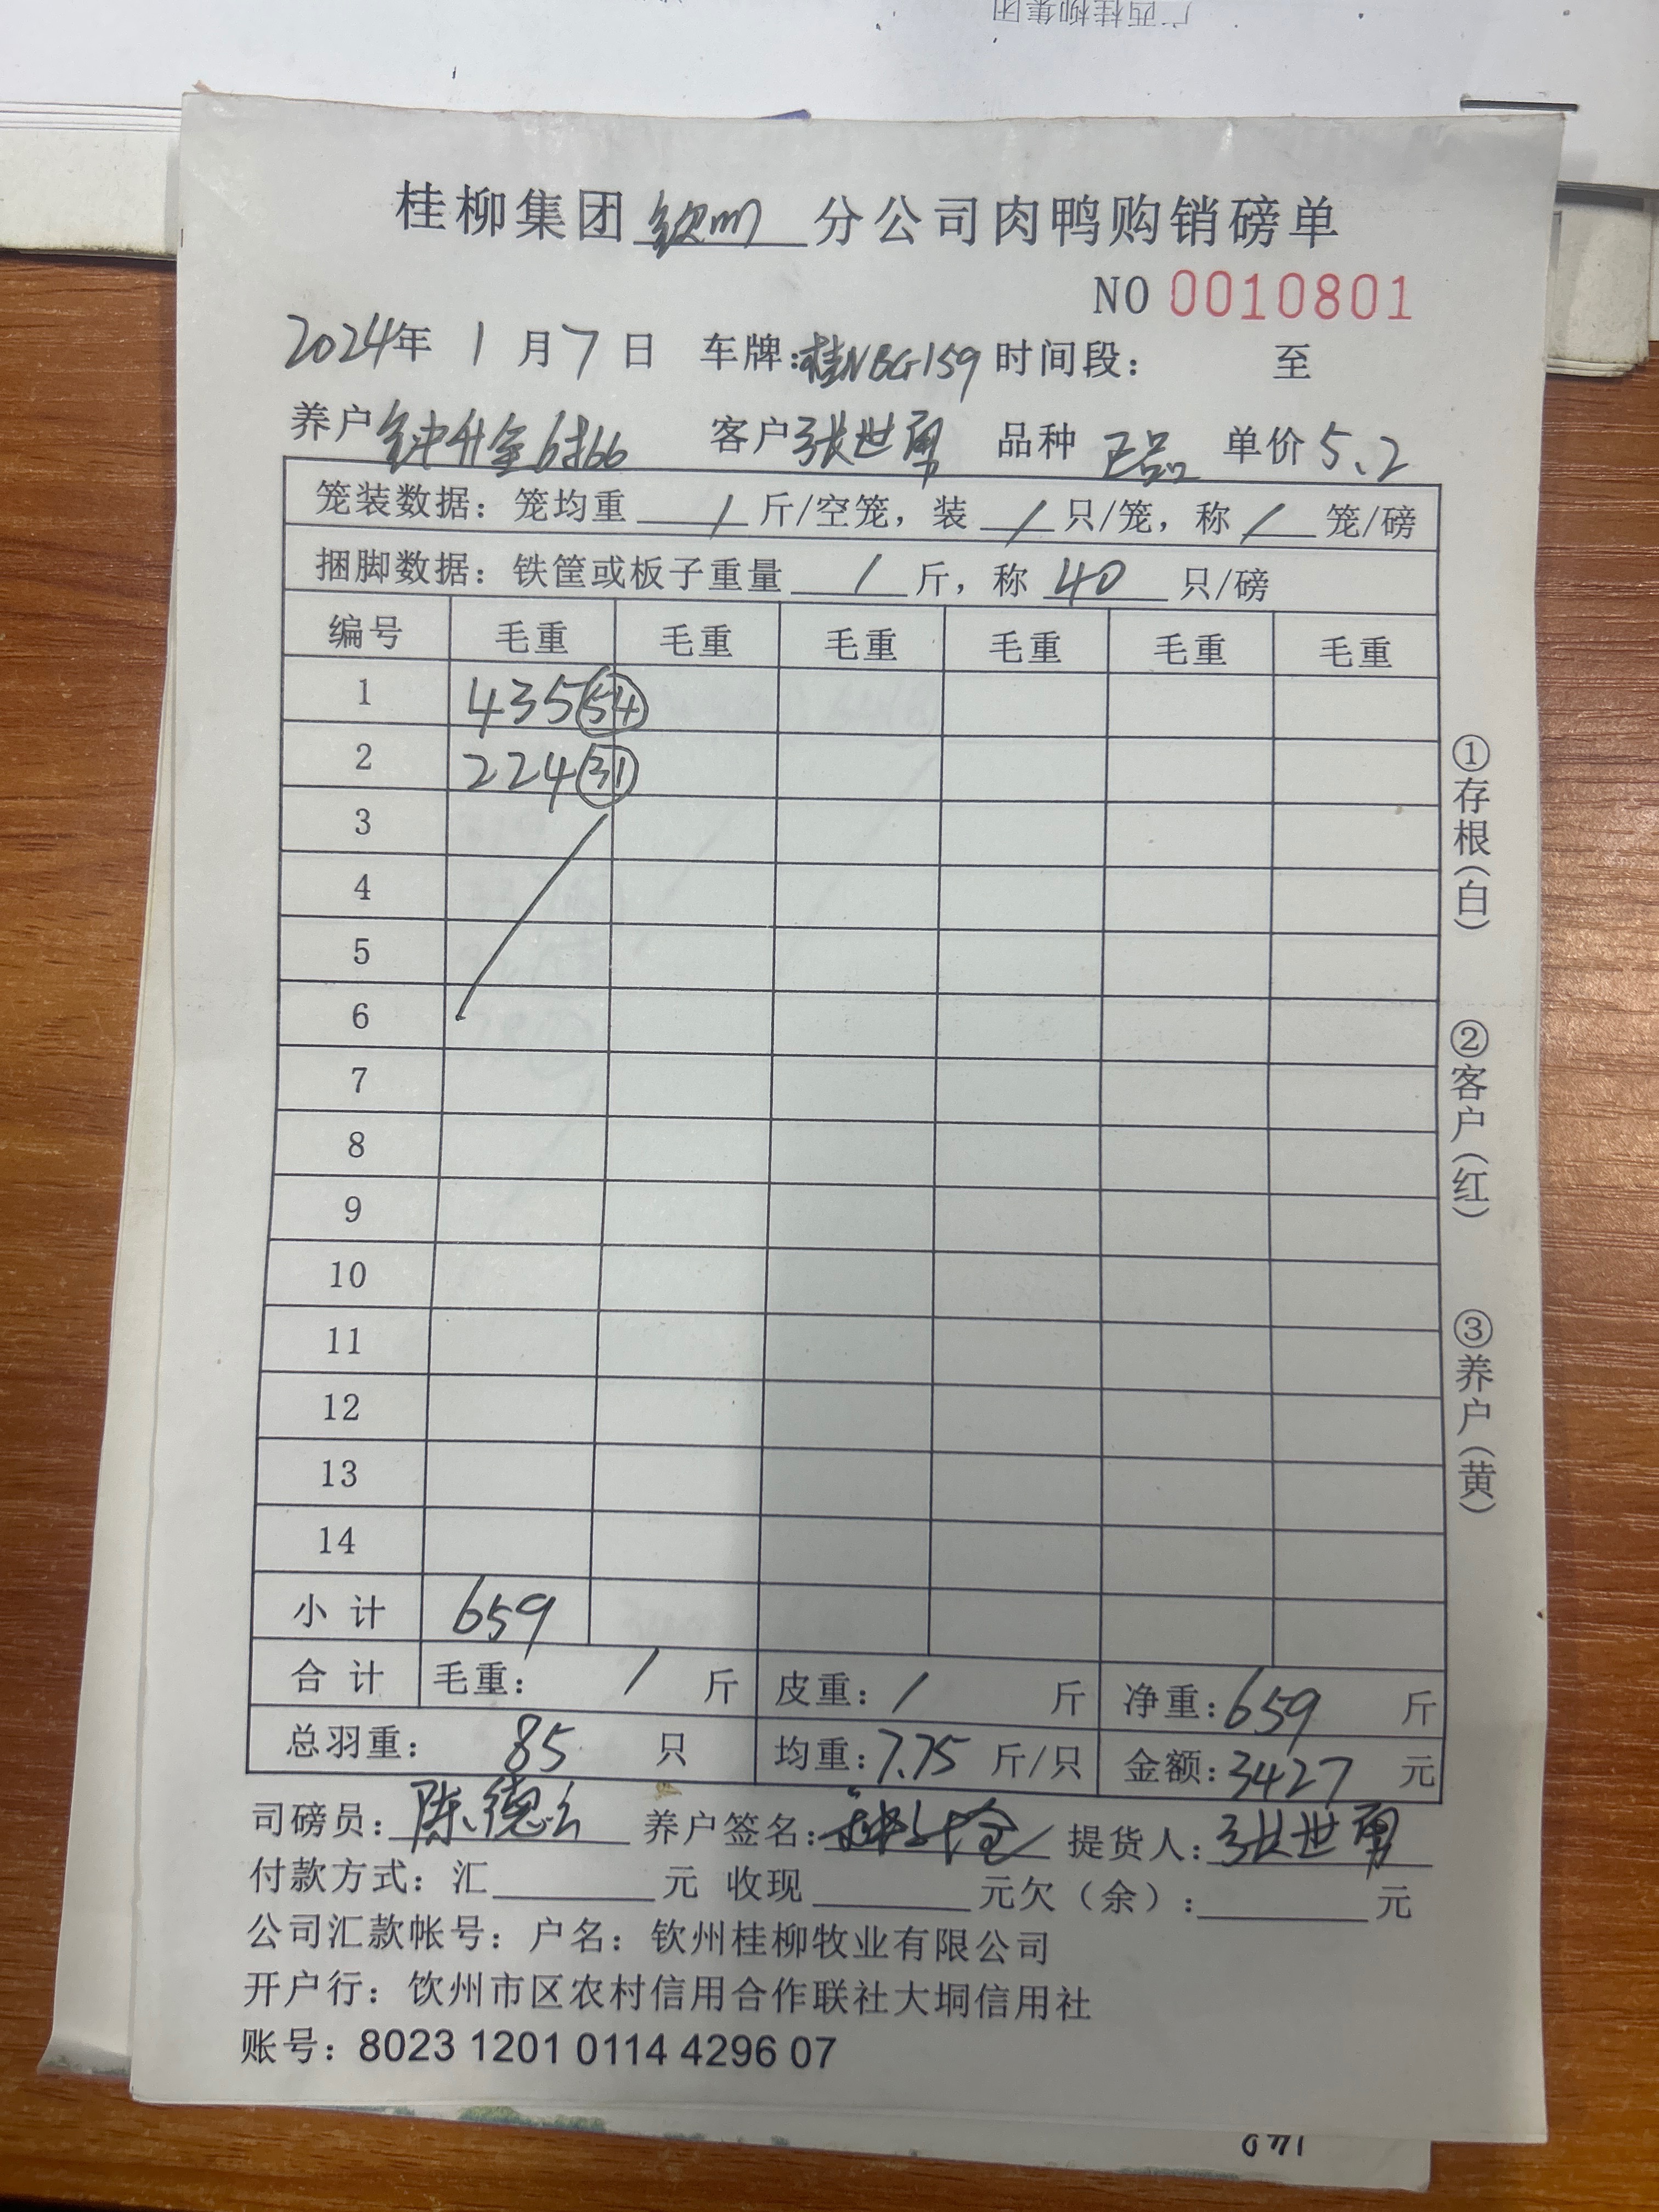 广西桂柳集团
桂柳集团钦州分公司肉鸭购销磅单
NO 0010801
2024年1月7日 车牌:桂NBG159 时间段: 至
养户钟升全 客户张世勇 品种 正品 单价5.2
笼装数据: 笼均重 / 斤/空笼, 装 / 只/笼, 称 / 笼/磅
捆脚数据: 铁筐或板子重量 / 斤, 称 40 只/磅
编号 毛重 毛重 毛重 毛重 毛重 毛重
1 435 54
2 224 31
3
4
5
6
7
8
9
10
11
12
13
14
小计 659
合计 毛重: / 斤 皮重: / 斤 净重:659 斤
总羽重: 85 只 均重:7.75 斤/只 金额:3427 元
司磅员: 养户签名: 提货人:张世勇
付款方式: 汇 元 收现 元欠(余): 元
公司汇款帐号: 户名: 钦州桂柳牧业有限公司
开户行: 饮州市区农村信用合作联社大垌信用社
账号: 8023 1201 0114 4296 07
①存根(白)
②客户(红)
③养户(黄)